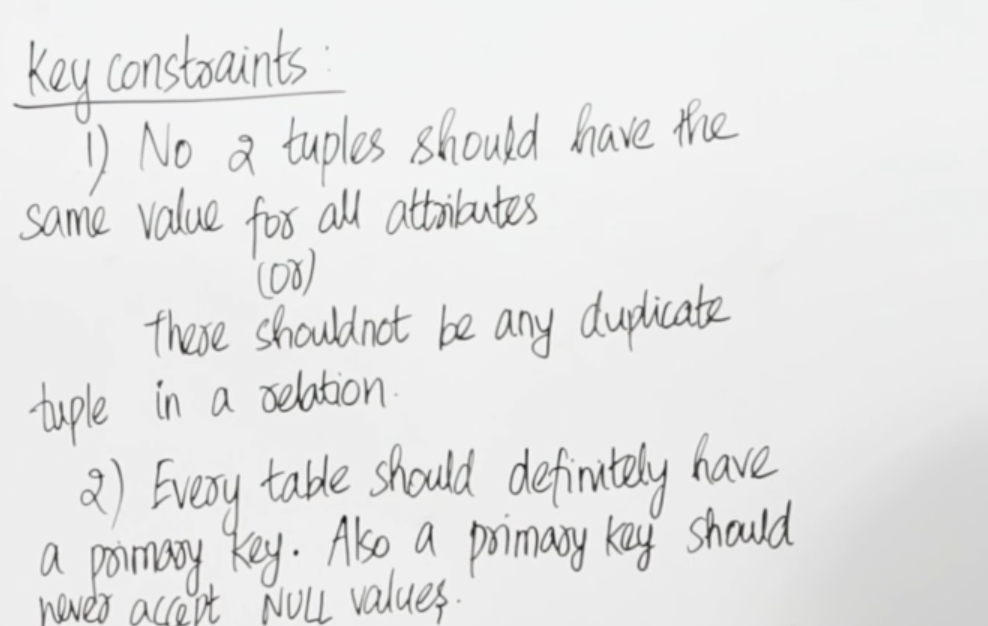 Key constraints :
1) No 2 tuples should have the
same value for all attributes
(or)
There shouldnot be any duplicate
tuple in a relation.
2) Every table should definitely have
a primary key. Also a primary key should
never accept NULL values.